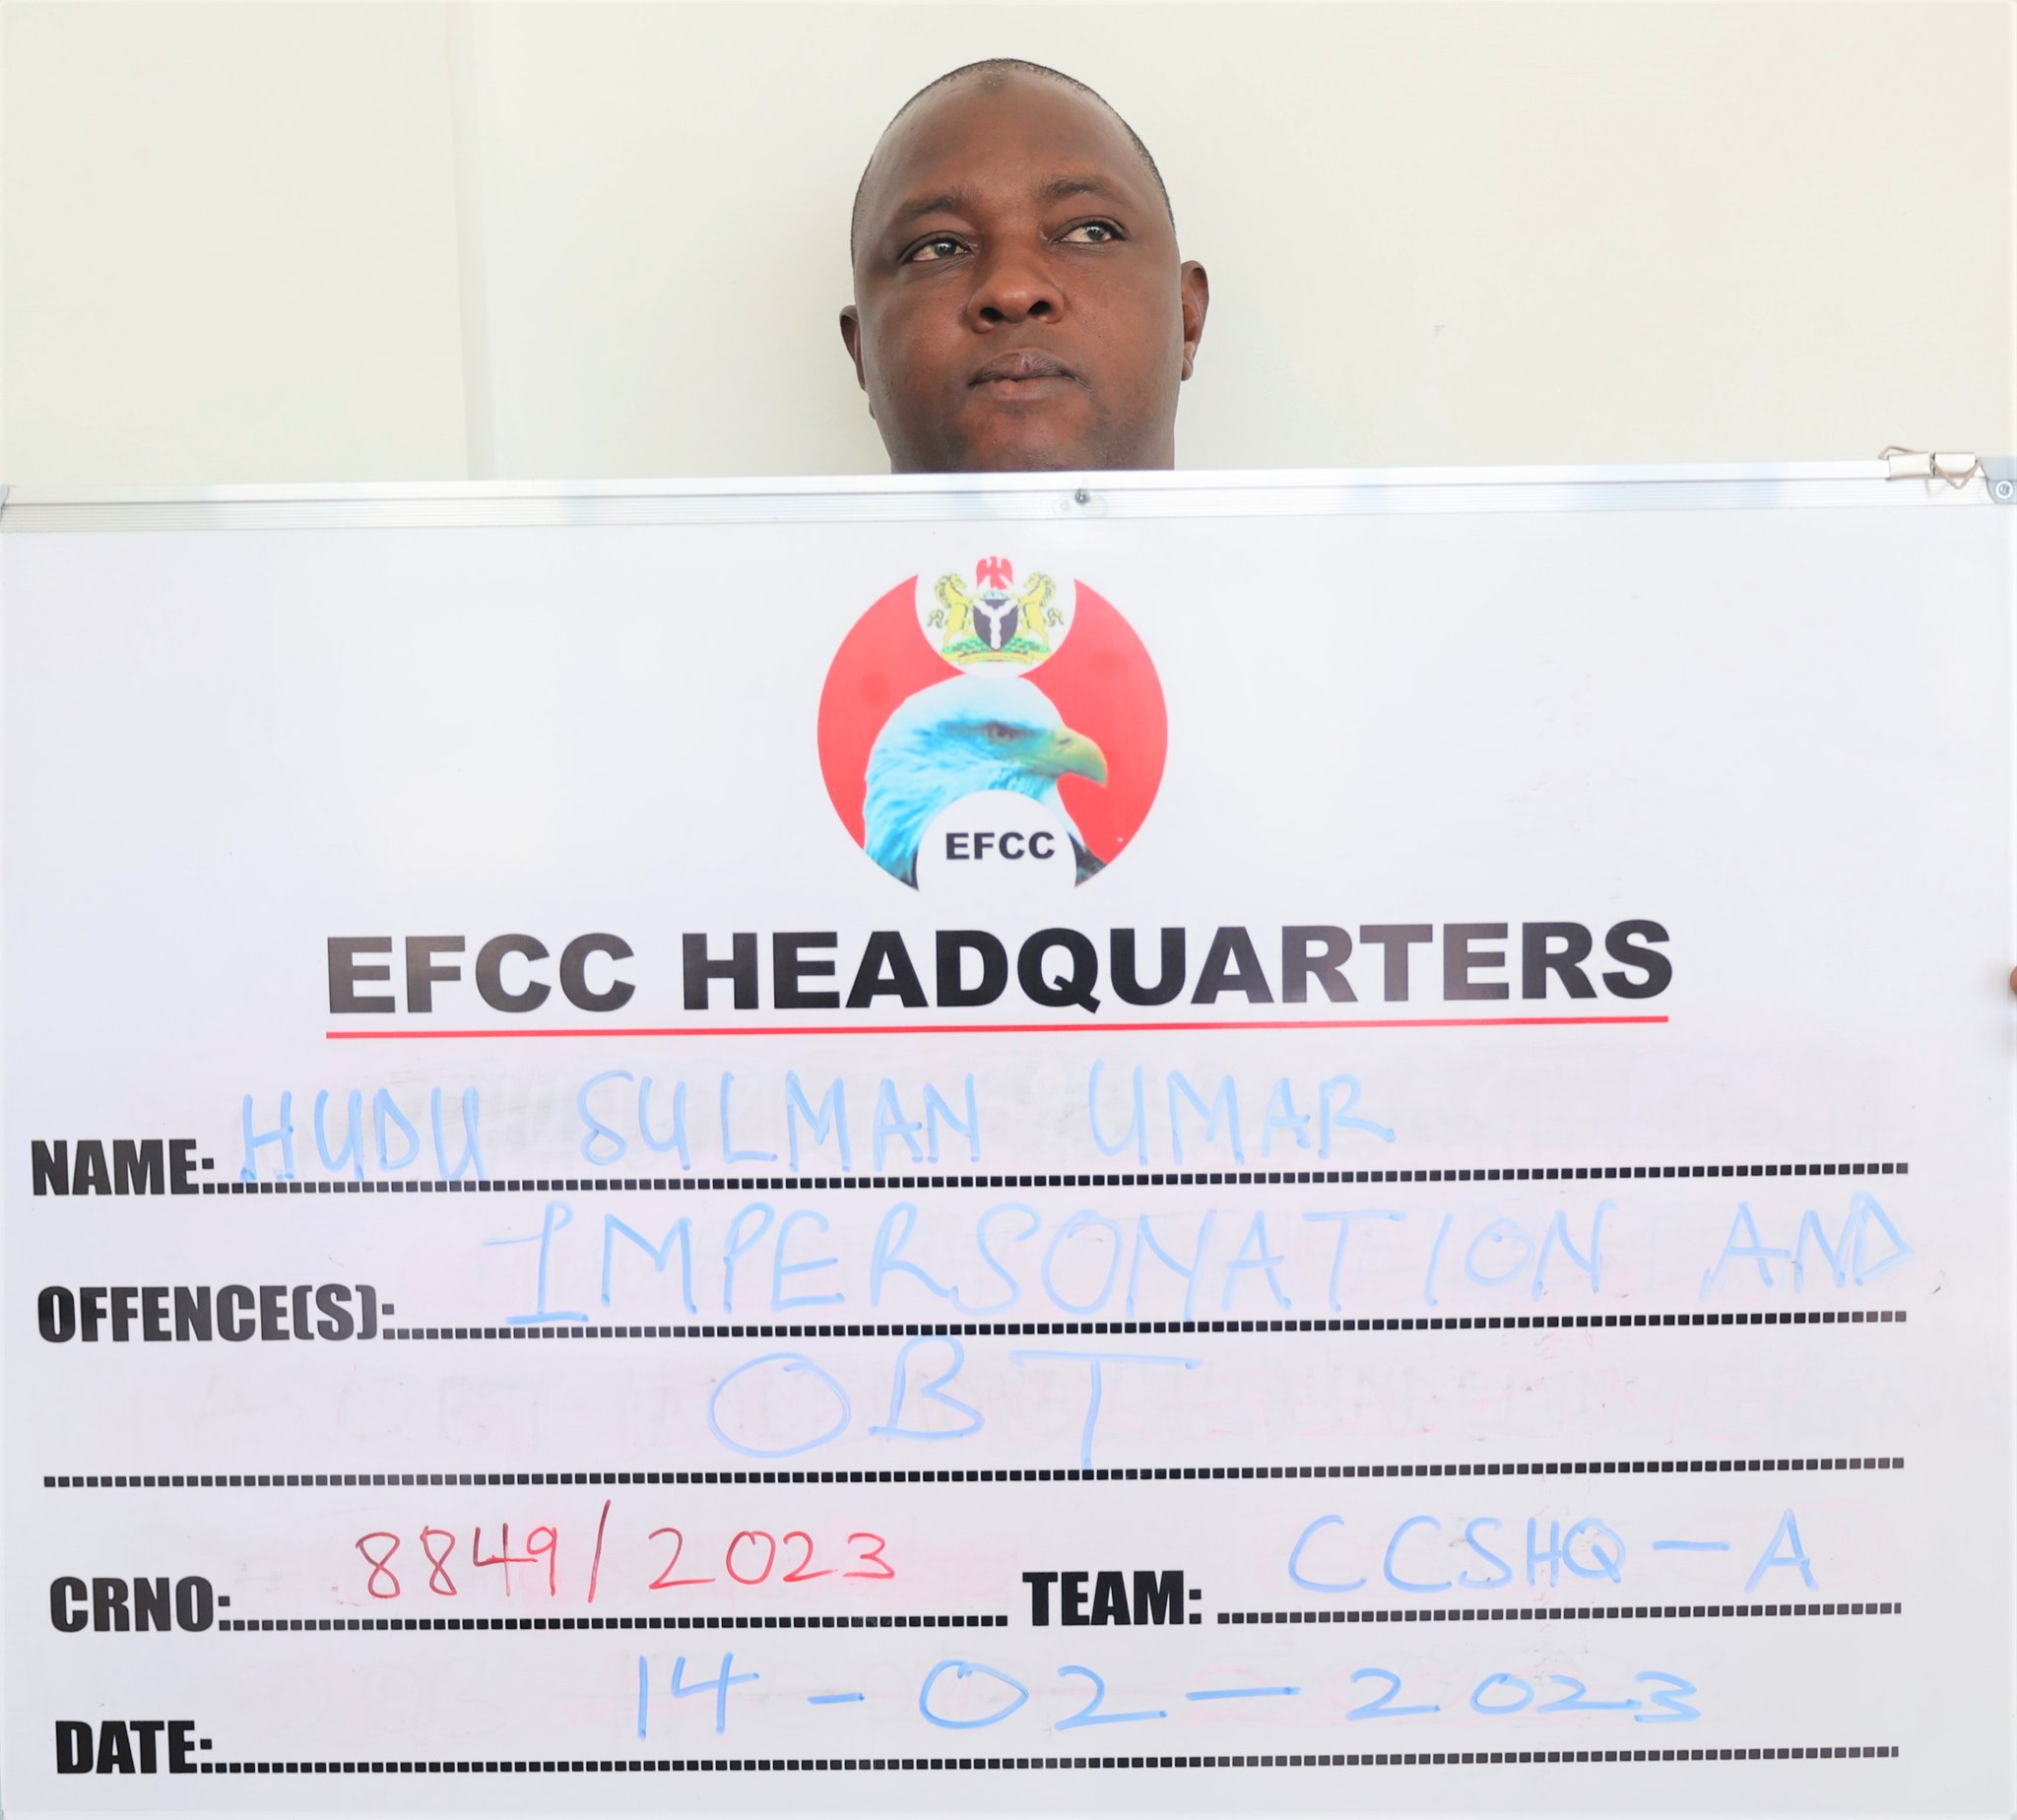 EFCC
EFCC HEADQUARTERS
NAME: HUDU SULMAN UMAR
OFFENCE(S): IMPERSONATION AND
OBT
CRNO: 8849/2023 TEAM: CCSHQ-A
DATE: 14-02-2023